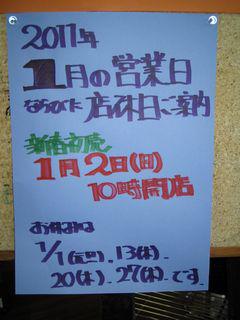 2011年
1月の営業日
ならびに店休日ご案内
新春初売
1月2日(日)
10時開店
お休みは
1/1(元旦).13(木).
20(木).27(木)です.